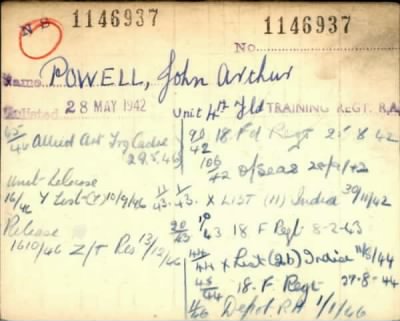 NS 1146937 No. 1146937
Name POWELL, John Arthur
Enlisted 28 MAY 1942 Unit 4th Fld TRAINING REGT. R.A.
45/46 Allied Art Trg Cadre 29.8.46
90/42 18. Fd Regt 25 8 42
106/42 O/Seas
Unit Release
16/46 Y List (Y) 10/9/46
1/43. X LIST (11) India 30/11/42
Release
90/43 18 F Regt 8-2-43
1610/46 Z/T Res 13/12/46
44/44 X List (2b) India /44
45/44 18. F. Regt 27-8-44
11/46 Depot RA 1/1/46